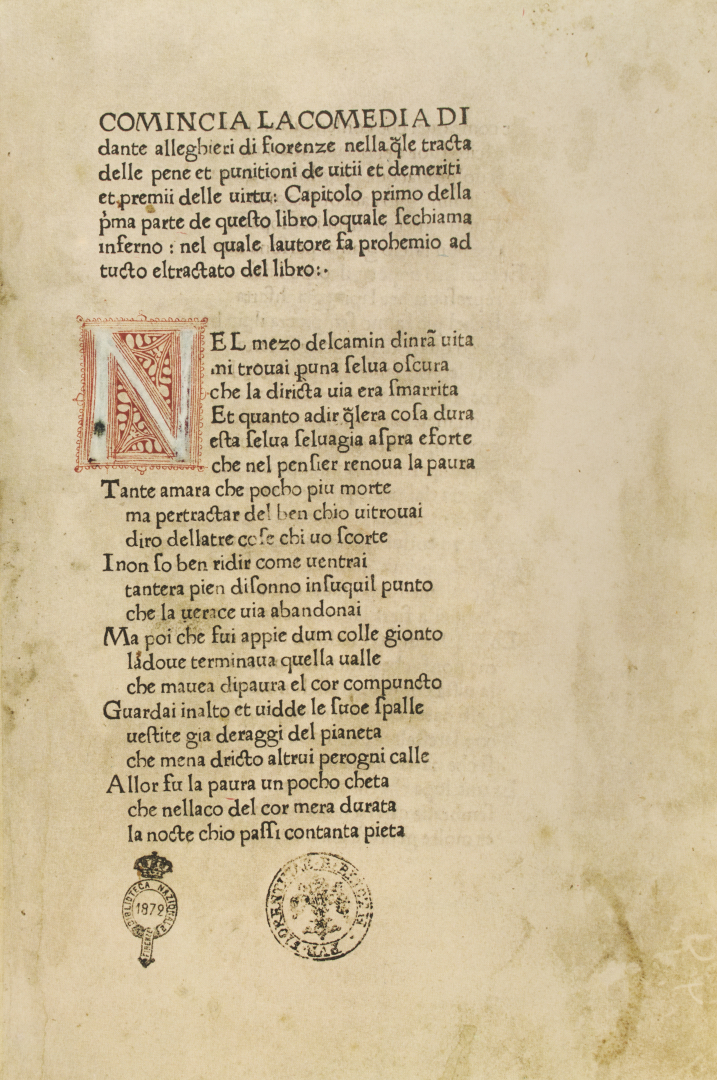 COMINCIA LACOMEDIA DI
dante alleghieri di fiorenze nella q̃le tracta
delle pene et punitioni de uitii et demeriti
et p̱remii delle uirtu: Capitolo primo della
p̃ma parte de queſto libro loquale ſechiama
inferno : nel quale lautore fa prohemio ad
tucto eltractato del libro:·
NEL mezo delcamin dinr̃a uita
mi trouai ꝑuna ſelua oſcura
che la diricta uia era ſmarrita
Et quanto adir q̃lera coſa dura
eſta ſelua ſeluagia aſpra eforte
che nel penſier renoua la paura
Tante amara che pocho piu morte
ma pertractar del ben chio uitrouai
diro dellatre coſe chi uo ſcorte
I non ſo ben ridir come uentrai
tantera pien diſonno inſuquil punto
che la uerace uia abandonai
Ma poi che fui appie dum colle gionto
ladoue terminaua quella ualle
che mauea dipaura el cor compuncto
Guardai inalto et uidde le ſuoe ſpalle
ueſtite gia deraggi del pianeta
che mena dricto altrui perogni calle
Allor fu la paura un pocho cheta
che nellaco del cor mera durata
la nocte chio paſſi contanta pieta
BIBLIOTECA NAZIONALE
1872
FIRENZE